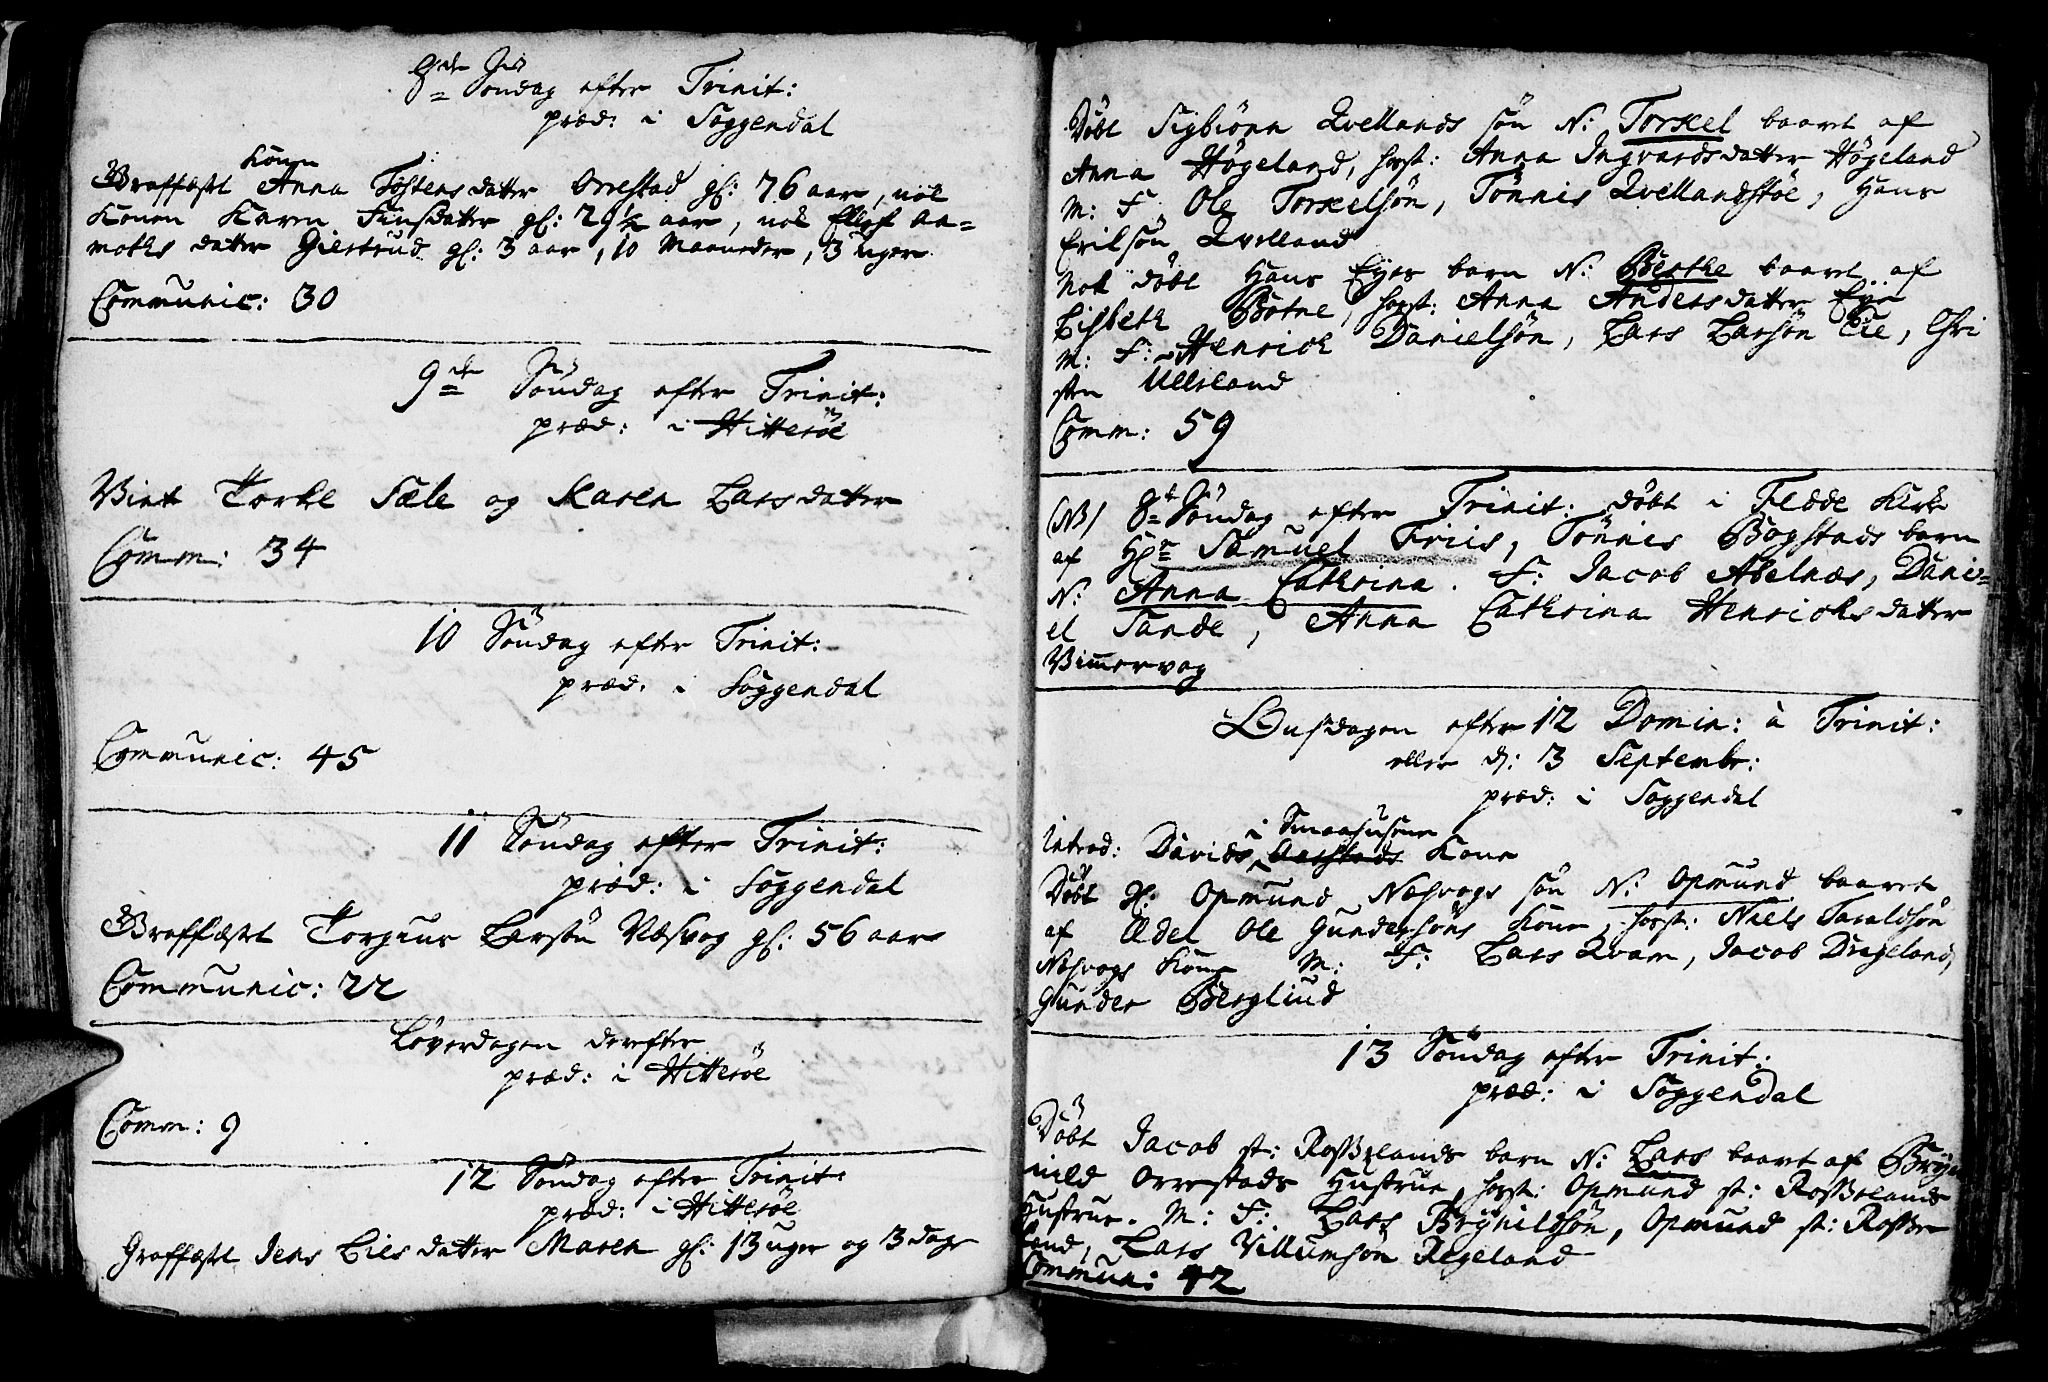 8de Søndag efter Trinit:
præd: i Soggendal
Konen
Graffæstet Anna Tostensdatter Orrestad gl: 76 aar, nok
Konen Karen Finsdatter gl: 29½ aar, nok Ellef Aa=
moths datter Giertrud gl: 3 aar, 10 Maaneder, 3 uger
Communic: 30
9de Søndag efter Trinit:
præd: i Hitterøe
Viet Torke Sæle og Karen Larsdatter
Comm: 34
10 Søndag efter Trinit:
præd: i Soggendal
Communic: 45
11 Søndag efter Trinit:
præd: i Soggendal
Graffæstet Torgius Larsøn Næsvog gl: 56 aar
Communic: 22
Løverdagen derefter
præd: i Hitterøe
Comm: 9
12 Søndag efter Trinit:
præd: i Hitterøe
Graffæstet Jens Lies datter Maren gl: 13 uger og 3 dage
Døbt Sigbiørn Qvellands søn N: Torkel baaret af
Anna Høgeland, host: Anna Ingvardsdatter Høgeland
M: F: Ole Torkelsøn, Tønnis Qvellandstøe, Hans
Eriksøn Qvelland
Nok døbt Hans Eyes barn N: Berthe baaret af
Lisbeth Botne, host: Anna Andersdatter Eye
M: F: Henrich Danielsøn, Lars Larsøn Eie, Chri
sten Ulleland
Comm: 59
(NB) 8de Søndag efter Trinit: døbt i Flæde Kirke
af Hr Samuel Friis, Tønnis Bogstads barn
N: Anna Cathrina. F: Jacob Abelnæs, Dani=
el Sande, Anna Cathrina Henrichsdatter
Vimmervog
Onsdagen efter 12 Domin: à Trinit:
eller d: 3 Septembr:
præd: i Soggendal
i Smaahusene
Introd: Davids Kone
Døbt Sl: Opmund Næsvogs søn N: Opmund baaret
af Edel Ole Gundersøns Kone, host: Niels Taraldsøn
Næsvogs Kone M: F: Lars Qvam, Jacob Drageland,
Gunder Bergliud
13 Søndag efter Trinit:
præd: i Soggendal
Døbt Jacob st: Rosselands barn N: Lars baaret af Bryn
nild Orrestads Hustrue, host: Opmund st: Rosselands
Hustrue. M: F: Lars Brynildsøn, Opmund st: Rosse
land, Lars Villumsøn Regeland
Commun: 42